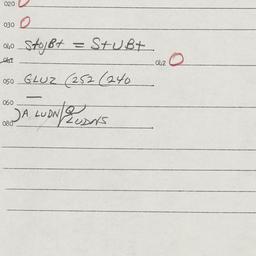 020 O
030 O
040 StojBt = StUBt
041 042 O
050 GLUZ (252 (240
060 —
080 A LUDN/ZUDNS